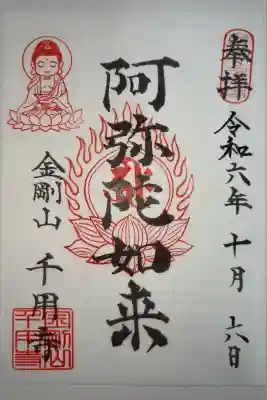 奉拝
令和六年十月六日
阿弥陀如来
金剛山 千用寺